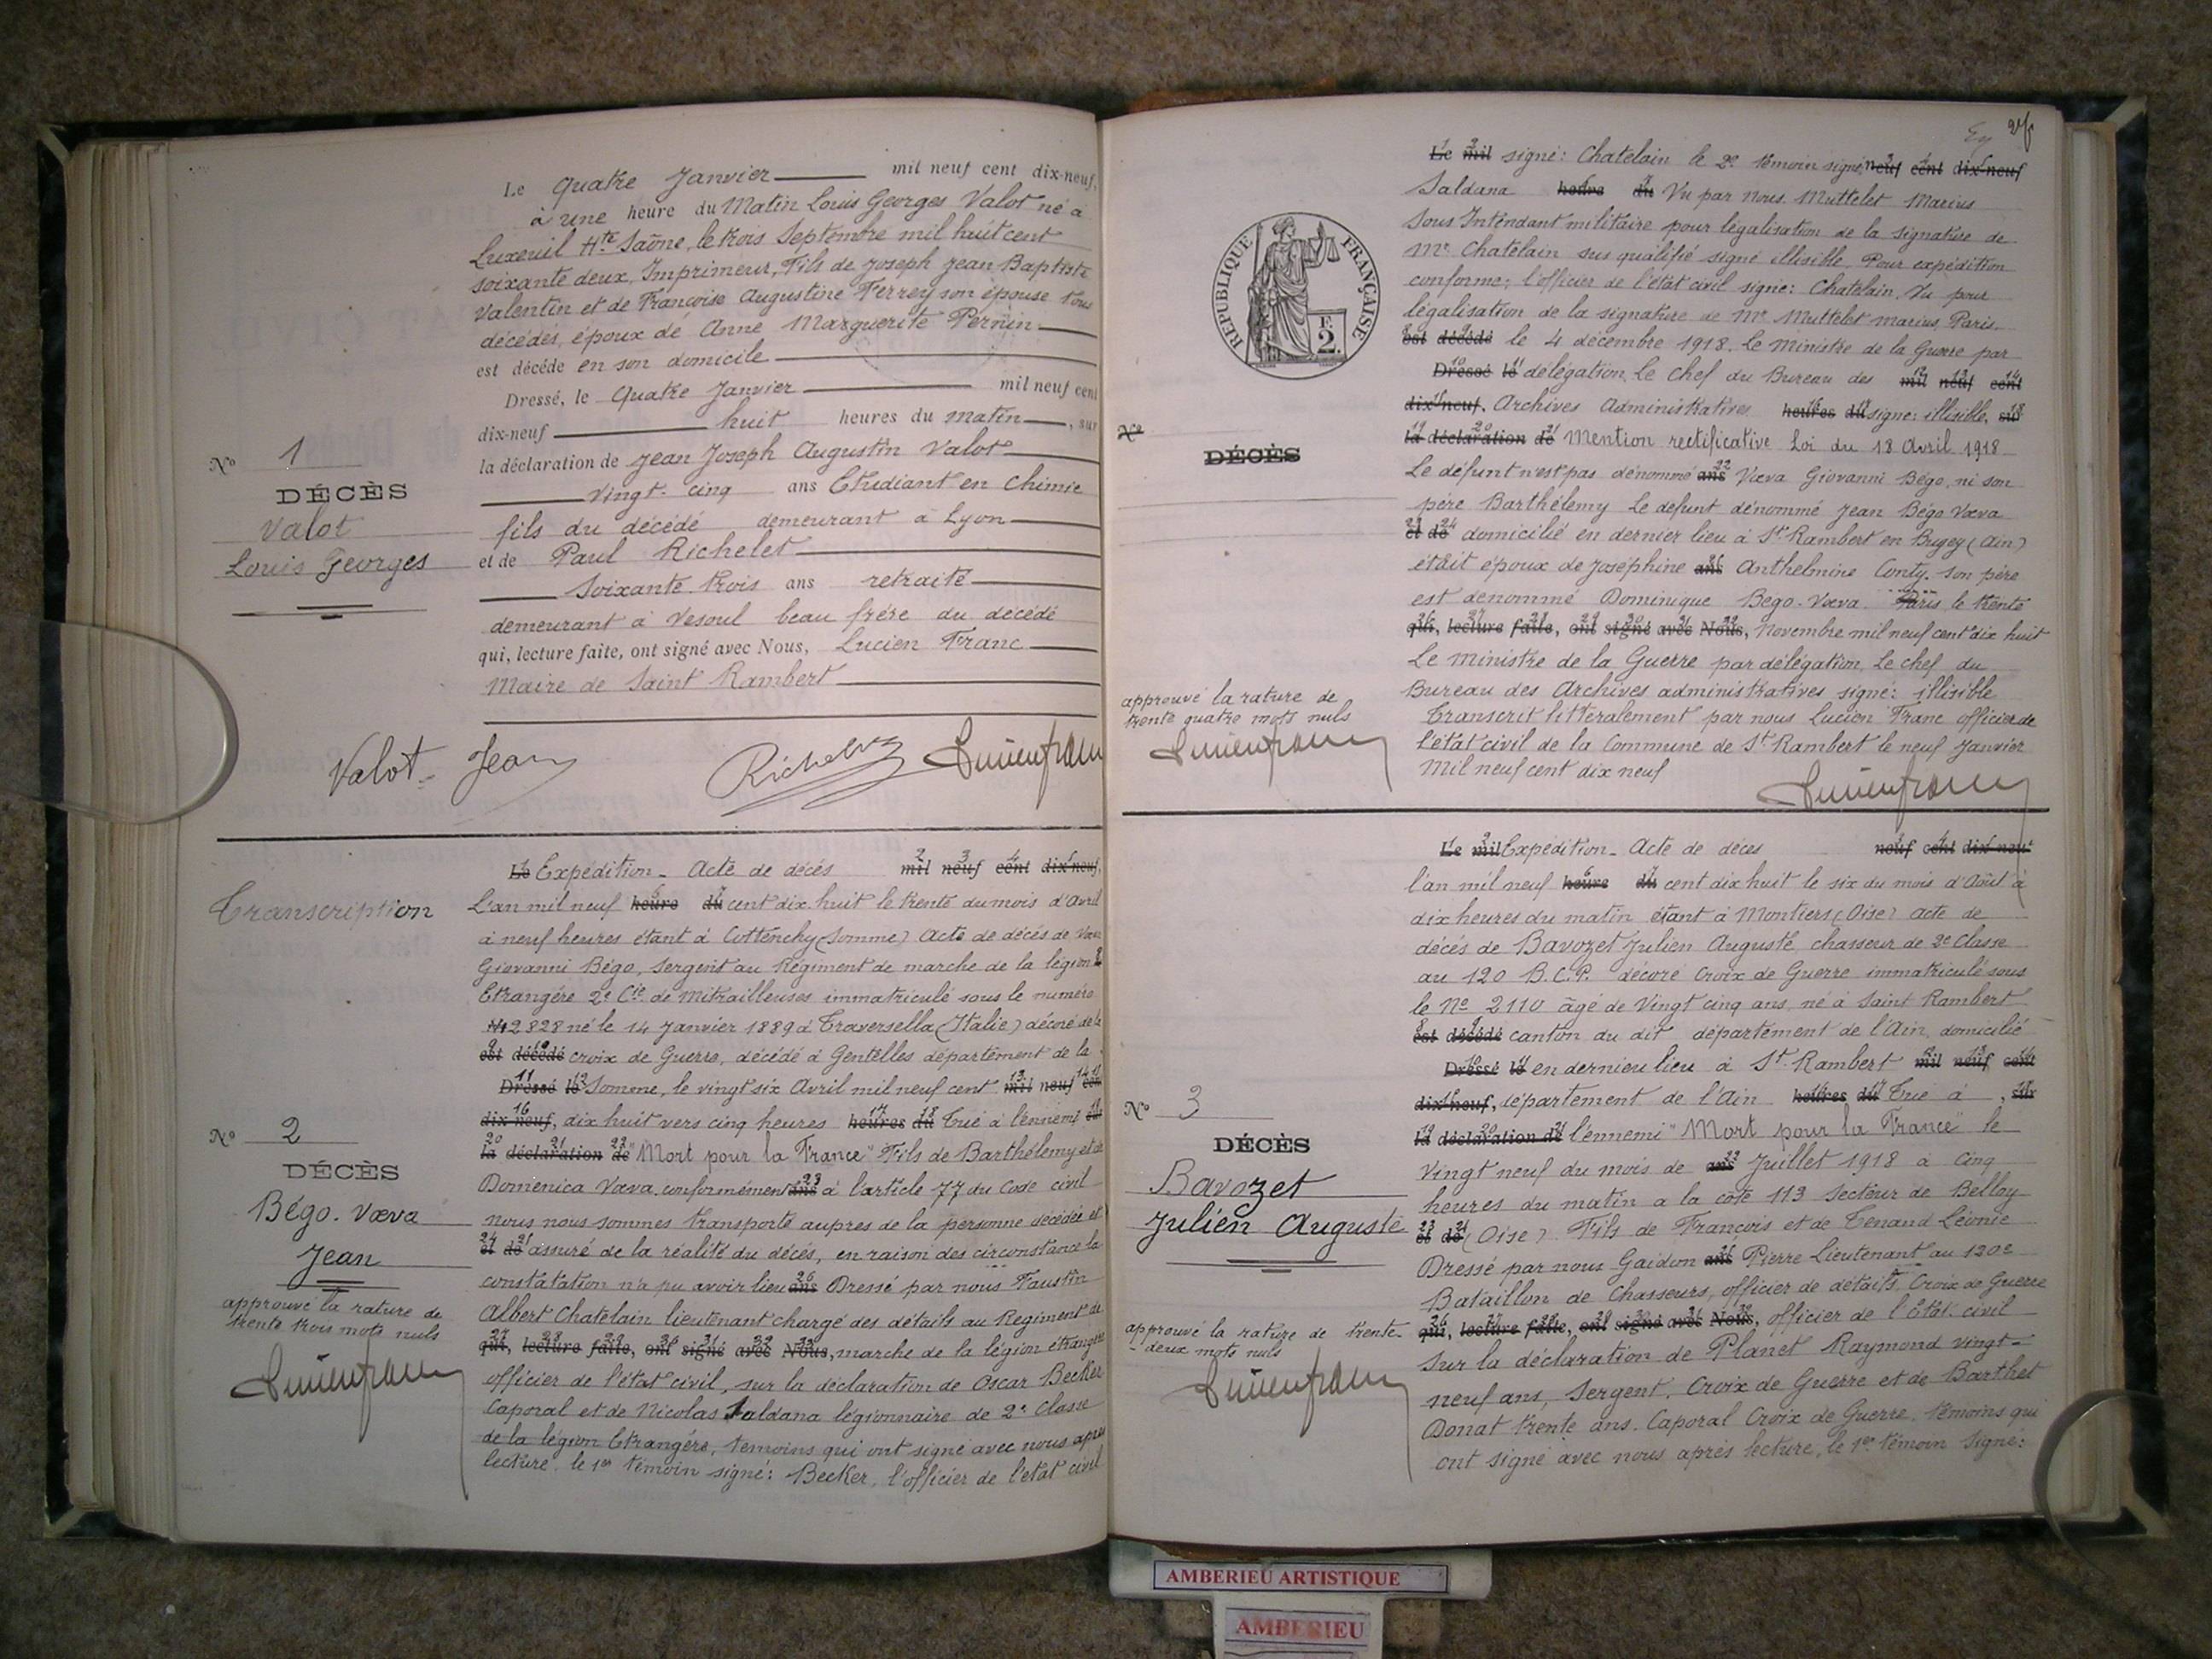 Le Quatre Janvier mil neuf cent dix-neuf,
à une heure du Matin Louis Georges Valot né à
Luxeuil Hte Saône, le trois Septembre mil huit cent
soixante deux, Imprimeur, Fils de Joseph Jean Baptiste
Valentin et de Françoise Augustine Ferrey son épouse tous
décédés, époux de Anne Marguerite Pernin
est décédé en son domicile
Dressé, le Quatre Janvier mil neuf cent
dix-neuf huit heures du matin, sur
la déclaration de Jean Joseph Augustin Valot
vingt-cinq ans Etudiant en Chimie
fils du décédé demeurant à Lyon
et de Paul Richelet
Soixante trois ans retraité
demeurant à Vesoul beau frère du décédé
qui, lecture faite, ont signé avec Nous, Lucien Franc
Maire de Saint Rambert
No 1
DÉCÈS
Valot
Louis Georges
Valot Jean Richelet Lucien Franc
Transcription
No 2
DÉCÈS
Bégo. Vœva
Jean
approuvé la rature de
trente trois mots nuls
Lucien Franc
Le Expédition - Acte de décès mil neuf cent dix-neuf,
L'an mil neuf heure du cent dix huit le trente du mois d'Avril
à neuf heures étant à Cottenchy (Somme) Acte de décès de Vœva
Giovanni Bégo, Sergent au Régiment de marche de la légion
Etrangère 2e Cie de Mitrailleuses immatriculé sous le numéro
2828 né le 14 Janvier 1889 à Traversella (Italie) décoré de la
est décédé croix de Guerre, décédé à Gentelles département de la
Dressé le Somme, le vingt six Avril mil neuf cent mil neuf cent
dix-neuf, dix huit vers cinq heures heures du Tué à l'ennemi sur
la déclaration de "Mort pour la France" Fils de Barthélemy et de
Domenica Vœva. conformément ans à l'article 77 du Code civil
nous nous sommes transporté aupres de la personne décédée et
et de assuré de la réalité du décès, en raison des circonstance la
constatation n'a pu avoir lieu ans Dressé par nous Faustin
Albert Chatelain lieutenant chargé des détails au Régiment de
qui, lecture faite, ont signé avec Nous, marche de la légion étrangère
officier de l'état civil, sur la déclaration de Oscar Becker
Caporal et de Nicolas Saldana légionnaire de 2e Classe
de la légion Etrangère, temoins qui ont signé avec nous apres
lecture. le 1er témoin signé: Becker, l'officier de l'état civil
Le mil signé: Chatelain le 2e témoin signé neuf cent dix-neuf
Saldana heure du Vu par nous Muttelet Marius
Sous Intendant militaire pour légalisation de la signature de
Mr Chatelain sus qualifié signé illisible. Pour expédition
conforme; l'officier de l'état civil signé: Chatelain. Vu pour
légalisation de la signature de Mr Muttelet Marius, Paris.
est décédé le 4 décembre 1918. le Ministre de la Guerre par
Dressé le délégation. Le Chef du Bureau des mil neuf cent
dix-neuf, Archives Administratives heures du signé: illisible, sur
la déclaration de Mention rectificative Loi du 18 Avril 1918
Le défunt n'est pas dénommé ans Vœva Giovanni Bégo, ni son
père Barthélemy Le défunt dénommé Jean Bégo Vœva
et de domicilié en dernier lieu à St Rambert en Bugey (Ain)
était époux de Joséphine ans Anthelmine Conty. Son père
est dénommé Dominique Bego-Vœva. Paris le trente
qui, lecture faite, ont signé avec Nous, Novembre mil neuf cent dix huit
Le Ministre de la Guerre par délégation. Le chef du
Bureau des Archives administratives signé: illisible
Transcrit littéralement par nous Lucien Franc officier de
l'état civil de la Commune de St Rambert le neuf Janvier
mil neuf cent dix neuf
Lucien Franc
RÉPUBLIQUE FRANÇAISE
F.
2.
No
DÉCÈS
approuvé la rature de
trente quatre mots nuls
Lucien Franc
No 3
DÉCÈS
Bavozet
Julien Auguste
approuvé la rature de trente-
deux mots nuls
Lucien Franc
Le mil Expédition - Acte de décès neuf cent dix-neuf
l'an mil neuf heure du cent dix huit le six du mois d'Août à
dix heures du matin étant à Montiers (Oise) acte de
décès de Bavozet Julien Auguste, chasseur de 2e Classe
au 120 B.C.P. décoré Croix de Guerre immatriculé sous
le No 2110 âgé de Vingt cinq ans, né à Saint Rambert
est décédé canton du dit département de l'Ain, domicilié
Dressé le en dernier lieu à St Rambert mil neuf cent
dix-neuf, département de l'Ain heures du Tué à, sur
la déclaration de l'ennemi "Mort pour la France" le
Vingt neuf du mois de ans Juillet 1918 à Cinq
heures du matin a la cote 113 Secteur de Belloy
et de (Oise). Fils de François et de Tenand Léonie
Dressé par nous Gaidon ans Pierre Lieutenant au 120e
Bataillon de Chasseurs, officier de détails. Croix de Guerre
qui, lecture faite, ont signé avec Nous, officier de l'état-civil
Sur la déclaration de Planet Raymond vingt-
neuf ans, Sergent. Croix de Guerre et de Barthet
Donat trente ans. Caporal Croix de Guerre. témoins qui
ont signé avec nous après lecture, le 1er témoin Signé:
AMBERIEU ARTISTIQUE
AMBERIEU